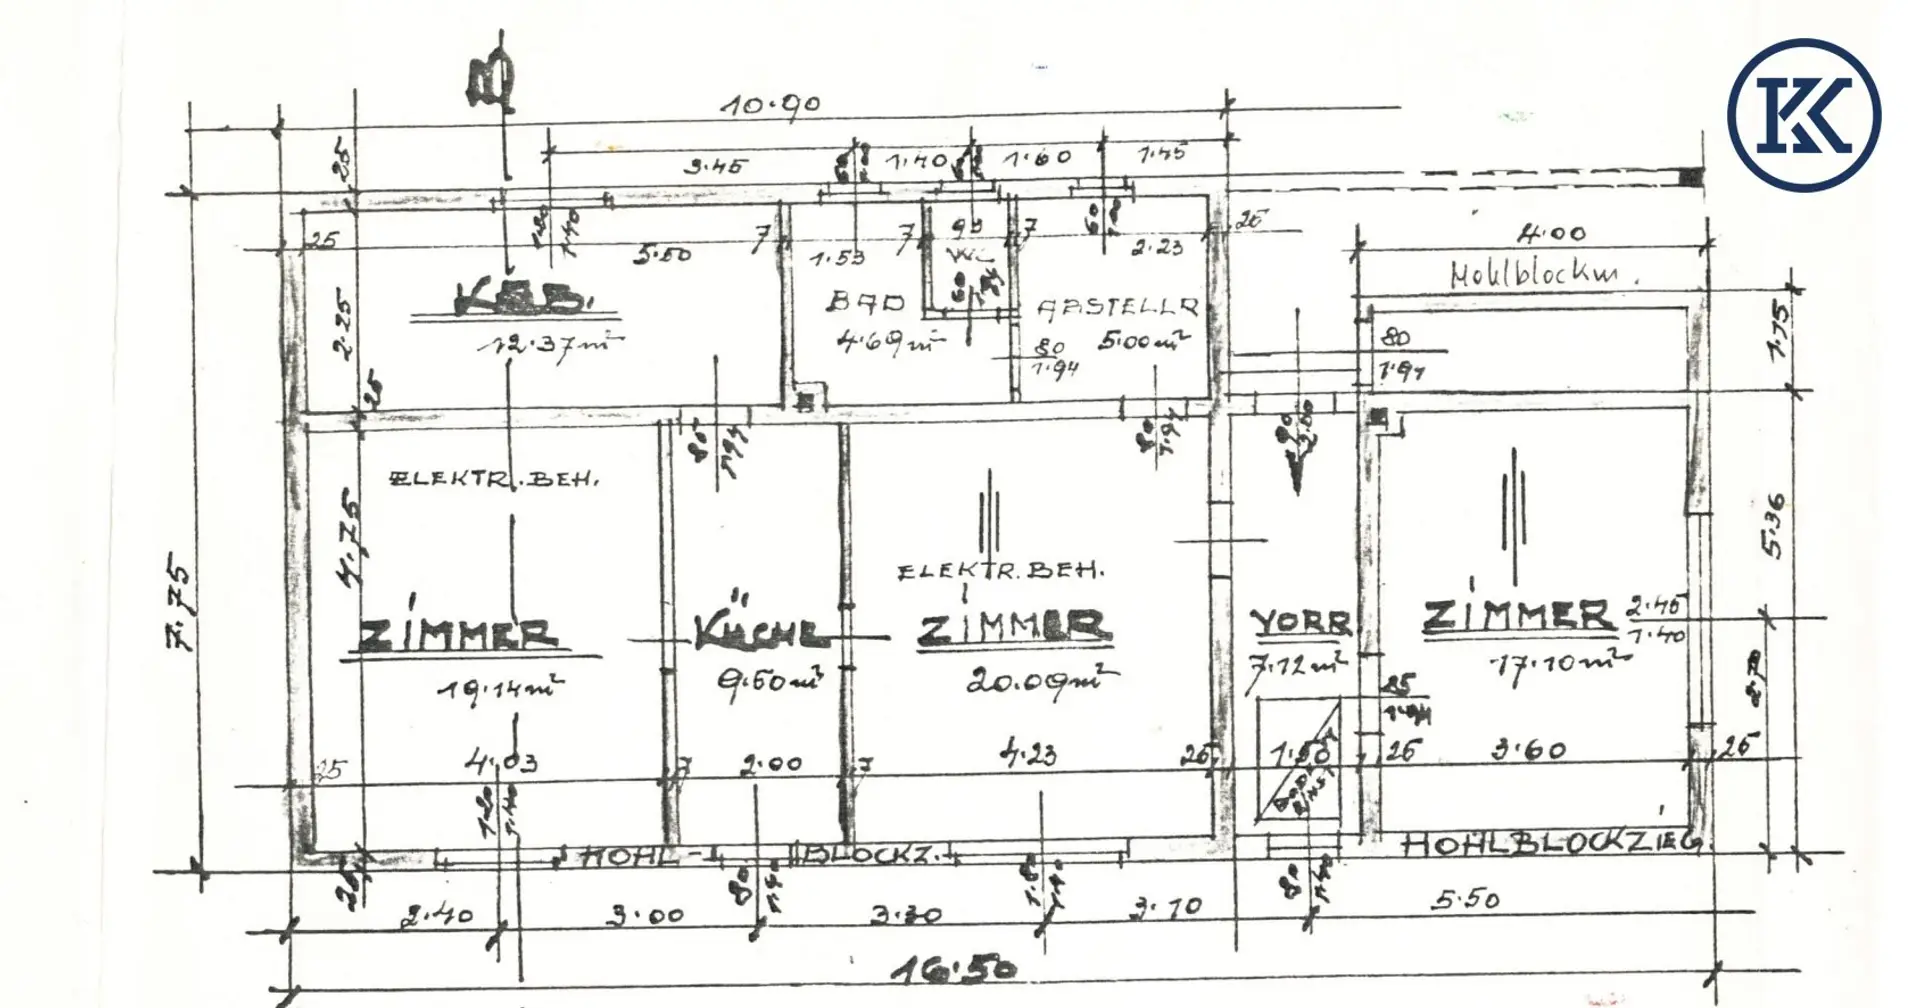 B
K
10.90
25
3.45
1.40
1.60
1.45
25
5.50
7
1.53
7
7
2.23
25
4.00
Hohlblockm.
KAB.
12.37m²
BAD
4.69m²
WC
ABSTELLR
5.00m²
80
1.94
80
1.94
1.75
2.25
25
ELEKTR. BEH.
4.75
ELEKTR. BEH.
5.36
7.75
ZIMMER
19.14m²
KÜCHE
9.50m²
ZIMMER
20.09m²
VORR
7.12m²
ZIMMER
17.10m²
2.45
1.40
25
4.03
7
2.00
7
4.23
25
1.50
25
3.60
25
HOHL-BLOCKZ.
HOHLBLOCKZIEG.
25
2.40
3.00
3.30
3.10
5.50
16.50